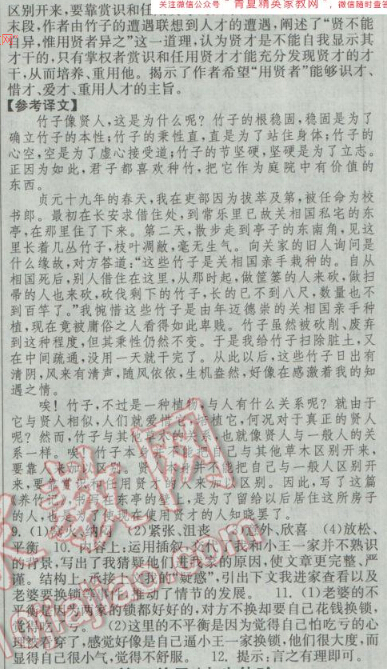 关注微信公众号“青夏精英家教网”,微信随时查答
区别开来,要靠赏识和任
末段,作者由竹子的遭遇联想到人才的遭遇,阐述了“贤不能
自异,惟用贤者异之”这一道理,认为贤才是不能自我显示其
才干的,只有掌权者赏识和任用贤才才能充分发现贤才的才
干,从而培养、重用他。揭示了作者希望“用贤者”能够识才、
惜才、爱才、重用人才的主旨。
【参考译文】
竹子像贤人,这是为什么呢?竹子的根稳固,稳固是为了
确立竹子的本性;竹子的秉性直,直是为了站住身体;竹子的
心空,空是为了虚心接受道;竹子的节坚硬,坚硬是为了立志。
正因为如此,君子都喜欢种竹,把它作为庭院中有价值的
东西。
贞元十九年的春天,我在吏部因为拔萃及第,被任命为校
书郎。最初在长安求借住处,到常乐里已故关相国私宅的东
亭,在那里住了下来。第二天,散步走到亭子的东南角,见这
里长着几丛竹子,枝叶凋敝,毫无生气。向关家的旧人询问是
什么缘故,对方答道:“这些竹子是关相国亲手栽种的。自从
相国死后,别人借住在这里,从那时起,做筐篓的人来砍,做扫
帚的人也来砍,砍伐剩下的竹子,长的已不到八尺,数量也不
到百竿了。”我惋惜这些竹子是由年迈德崇的关相国亲手种
植,现在竟被庸俗之人看得如此卑贱。竹子虽然被砍削、废弃
到这种程度,但其秉性仍然不变。于是我给竹子扫除脏土,又
在中间疏通,没用一天就干完了。从此以后,这些竹子日出有
清阴,风来有清声,随风依依,生机盎然,好像在感激着我的知
遇之情。
唉!竹子,不过是一种植物,与人有什么关系呢?就由于
它与贤人相似,人们就爱惜它,培植它,何况对于真正的贤人
呢?然而,竹子与其他草木的关系,也就像贤人与一般人的关
系一样。唉!竹子本身并不能把自己与其他草木区别开来,
要靠人来加以区别,贤人本身并不能把自己与一般人区别开
来,要靠赏识和任用贤才的人来加以区别。因此,写了这篇
《养竹记》,书写在东亭的壁上,是为了留给以后居住这所房子
的人,也是为了让现在使用贤才的人知晓罢了。
9. (1)发火、纳闷 (2)紧张、沮丧 (3)意外、欣喜 (4)放松、
平衡 10. 内容上:运用插叙,交代了我和小王一家并不熟识
的背景,写出了我猜疑他们用我家的原因,使文章更完整、严
谨。结构上:承接上文“我的疑惑”,引出下文我进家查看以及
老婆要换锁等情节,推动了情节的发展。 11. (1)老婆的不
平衡是因为两家的锁都好好的,对方不换却要自己花钱换锁,
觉得吃了亏。 (2)这里的不平衡是因为觉得自己怕吃亏的心
理被看穿了,感觉好像是自己逼小王一家换锁,他们很大度,而
显得自己很小气,觉得不舒服。 12. 提示:言之有理即可。